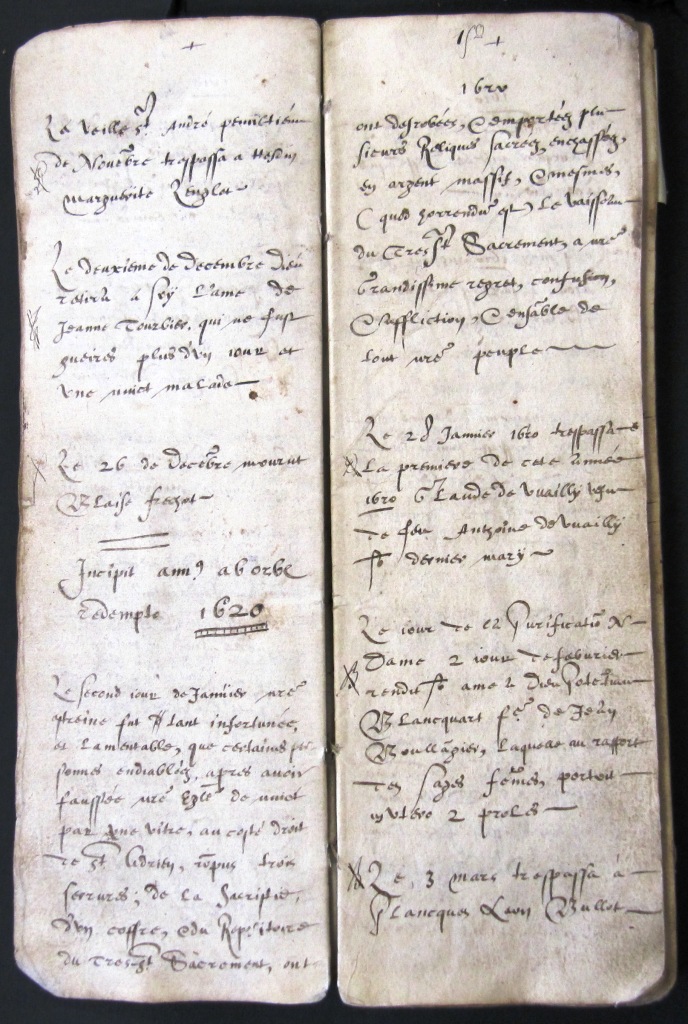 +
La veille st. André penultiem
de Novēbre trespassa a Hesdin
Marguerite Lenglet
Le deuxieme de decembre dieu
retira à soy l'ame de
Jeanne Tourbier, qui ne fust
gueires plus d'vn iour et
vne nuict malade
Le 26 de decēbre mourut
Blaise
Incipit ann9 ab orbe
redempto 1620
Le second iour de Januier nrē
fut tant infortunée,
et lamentable, que certains per
sonnes endiablées, apres auoir
faussée nrē Eglē de nuict
par vne vitre, au costé droit
de st. Adrien, rōpus trois
serrures; de la Sacristie,
d'vn coffre, & du Repositoire
du Tres st. Sacrement, ont
+
1620
ont desrobées, & emportées plu
sieurs Reliques sacrées, enchassées,
en argent massif, & mesmes,
(quod horrendū est) le vaisseau
du Tres st. Sacrement, a nrē
grandissime regret, confusion,
& affliction, & ensāble de
tout nrē peuple
Le 28 Januier 1620 trespassa
la premiere de cete année
1620 Claude de Wailly vefue
de feu Anthoine de Wailly
sō dernier mary
Le iour de la Purificatiō N.
Dame 2 iour de feburier
rendit sō ame à Dieu
Blancquart fē. de Jean
Boullāgier, laquelle au raport
des sages fēmes, portoit
in vtero 2 proles
Le 3 mars trespassa à
Plancques Leon Bullot